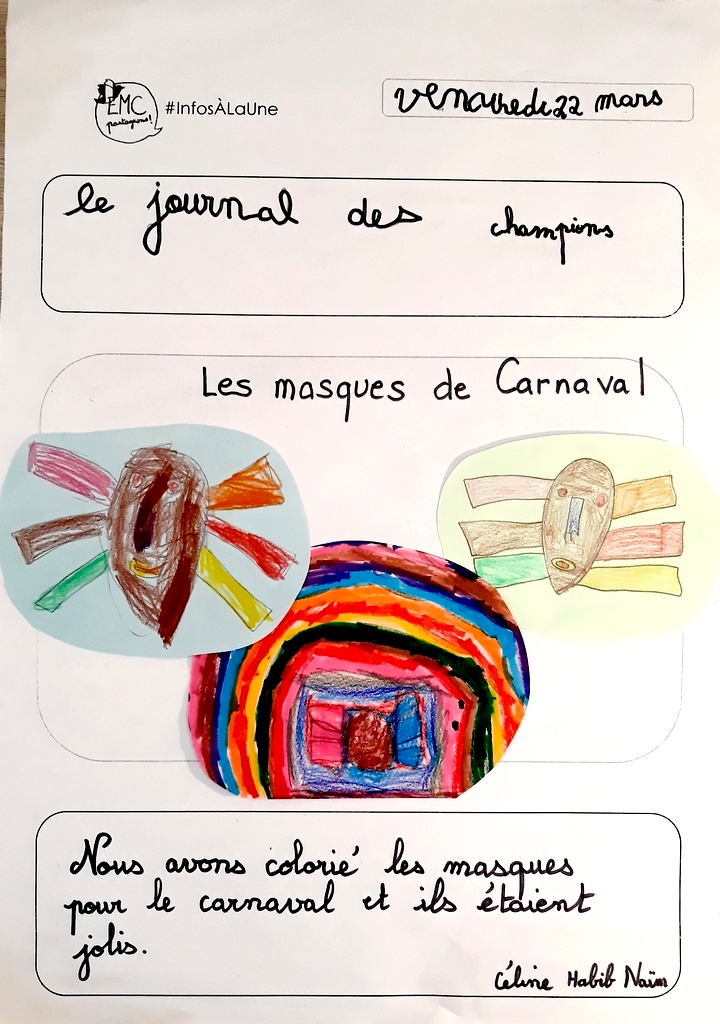 EMC
partageons!
#InfosÀLaUne
venduedi 22 mars
le journal des champions
Les masques de Carnaval
Nous avons colorié les masques
pour le carnaval et ils étaient
jolis.
Céline Habib Naïm